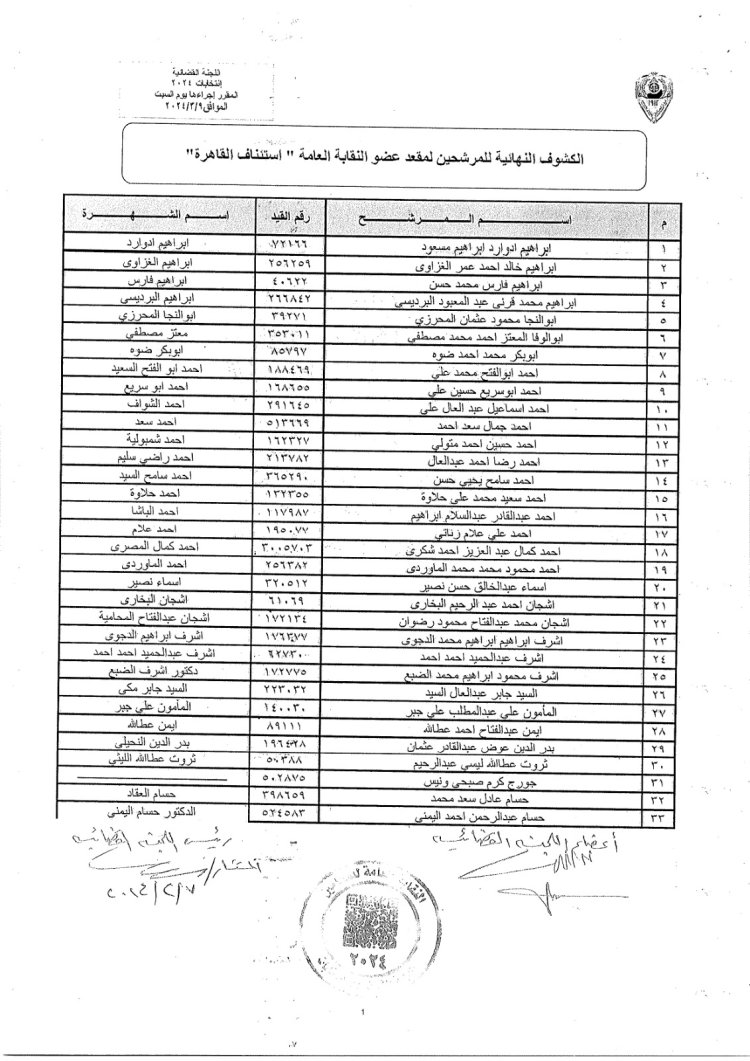 اللجنة القضائية
إنتخابات ٢٠٢٤
المقرر إجراءها يوم السبت
الموافق ٢٠٢٤/٣/٩
١٩١٢
الكشوف النهائية للمرشحين لمقعد عضو النقابة العامة " استئناف القاهرة"
م اســم المـرشـح رقم القيد اسـم الشـهـرة
١ ابراهيم ادوارد ابراهيم مسعود ٧٢١٦٦ ابراهيم ادوارد
٢ ابراهيم خالد احمد عمر الغزاوى ٢٥٦٢٥٩ ابراهيم الغزاوى
٣ ابراهيم فارس محمد حسن ٤٠٦٢٢ ابراهيم فارس
٤ ابراهيم محمد قرنى عبد المعبود البرديسى ٢٦٦٨٤٢ ابراهيم البرديسى
٥ ابوالنجا محمود عثمان المحرزي ٣٩٢٧١ ابوالنجا المحرزي
٦ ابوالوفا المعتز احمد محمد مصطفي ٣٥٣٠١١ معتز مصطفي
٧ ابوبكر محمد احمد ضوه ٨٥٧٩٧ ابوبكر ضوه
٨ احمد ابوالفتح محمد علي ١٨٨٤٦٩ احمد ابو الفتح السعيد
٩ احمد ابوسريع حسين علي ١٦٨٦٥٥ احمد ابو سريع
١٠ احمد اسماعيل عبد العال على ٢٩١٦٤٥ احمد الشواف
١١ احمد جمال سعد احمد ٥١٣٦٦٩ احمد سعد
١٢ احمد حسين احمد متولي ١٦٢٣٢٧ احمد شمبولية
١٣ احمد رضا احمد عبدالعال ٢١٣٧٨٢ احمد راضي سليم
١٤ احمد سامح يحيي حسن ٣٦٥٢٩٠ احمد سامح السيد
١٥ احمد سعيد محمد على حلاوة ١٣٢٣٥٥ احمد حلاوة
١٦ احمد عبدالقادر عبدالسلام ابراهيم ١١٧٩٨٧ احمد الباشا
١٧ احمد علي علام زناتي ١٩٥٠٧٧ احمد علام
١٨ احمد كمال عبد العزيز احمد شكرى ٣٠٠٥٧٠٣ احمد كمال المصرى
١٩ احمد محمود محمد محمد الماوردى ٢٥٦٣٨٢ احمد الماوردى
٢٠ اسماء عبدالخالق حسن نصير ٣٢٠٥١٢ اسماء نصير
٢١ اشجان احمد عبد الرحيم البخارى ٦١٠٦٩ اشجان البخارى
٢٢ اشجان محمد عبدالفتاح محمود رضوان ١٧٢١٣٤ اشجان عبدالفتاح المحامية
٢٣ اشرف ابراهيم ابراهيم محمد الدجوى ١٧٦٣٧٧ اشرف ابراهيم الدجوى
٢٤ اشرف عبدالحميد احمد احمد ٦٢٧٣٠ اشرف عبدالحميد احمد احمد
٢٥ اشرف محمود ابراهيم محمد الضبع ١٧٢٧٧٥ دكتور اشرف الضبع
٢٦ السيد جابر عبدالعال السيد ٢٢٣٠٣٢ السيد جابر مكى
٢٧ المأمون علي عبدالمطلب علي جبر ١٤٠٠٣٠ المأمون علي جبر
٢٨ ايمن عبدالفتاح احمد عطاالله ٨٩١١١ ايمن عطاالله
٢٩ بدر الدين عوض عبدالقادر عثمان ١٩٦٤٢٨ بدر الدين النحيلي
٣٠ ثروت عطاالله ليسي عبدالرحيم ٥٠٣٨٨ ثروت عطاالله الليثي
٣١ جورج كرم صبحي ونيس ٥٠٢٨٧٥
٣٢ حسام عادل سعد محمد ٣٩٨٦٥٩ حسام العقاد
٣٣ حسام عبدالرحمن احمد اليمنى ٥٢٤٥٨٣ الدكتور حسام اليمنى
أعضاء اللجنة القضائية رئيس اللجنة القضائية
المستشار/
٢٠٢٤/٢/٧
٢٠٢٤
1